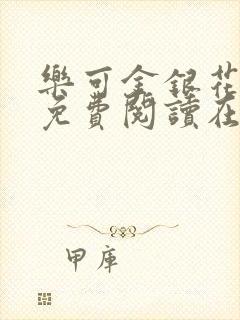 樂可金銀花
免費閱讀在
甲庫